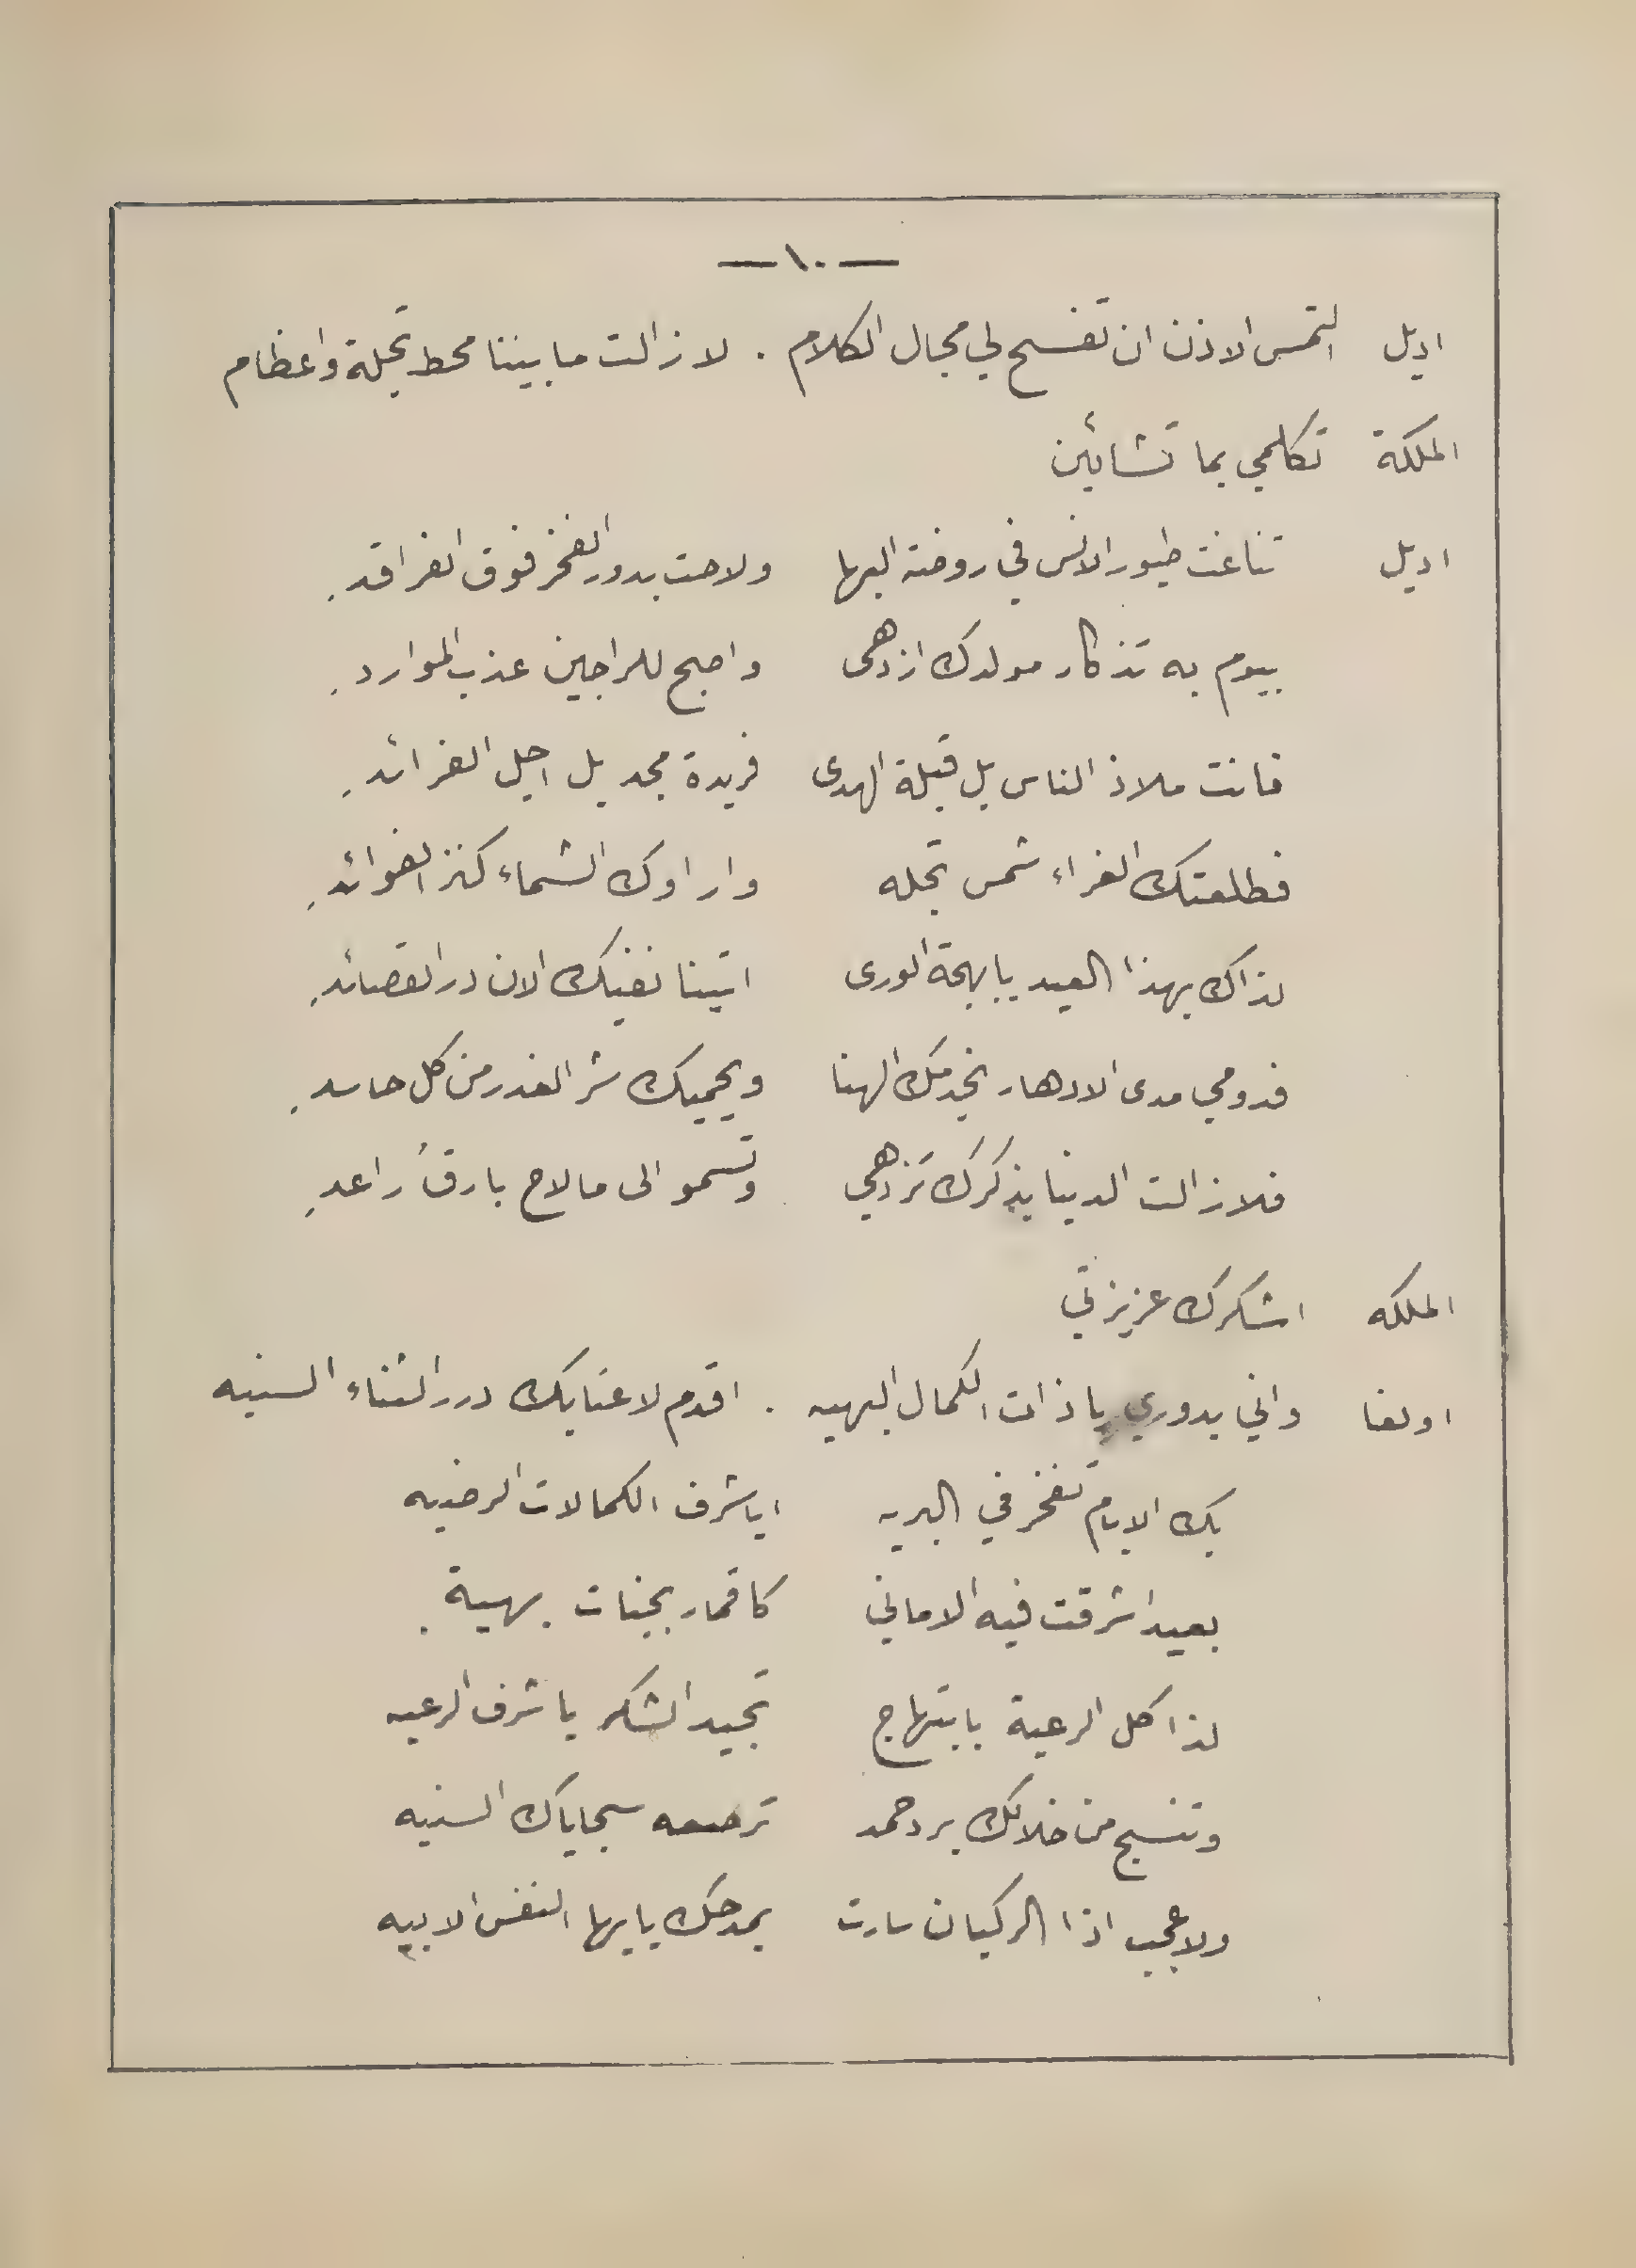 — ١٠ —
اديل التمس الاذن ان تفسح لي مجال الكلام . لا زالت ما بيننا محط تجلة واعظام
الملكة تكلمي بما تشائين
اديل تناغت طيور الانس في روضة البها ولاحت بدور الفخر فوق الفراقدِ
بيوم به تذكار مولدك ازدهى واصبح للراجين عذب المواردِ
فانت ملاذ الناس بل قبلة الهدى فريدة مجد بل اجل الفرائدِ
فطلعتك الغراء شمس تجله واراوك الشماء كنز الفوائدِ
لذاك بهذا العيد يا بهجة الورى اتينا نغنيك الان در القصائدِ
فدومي مدى الادهار يخدمك الهنا ويحميك شر الغدر من كل حاسدِ
فلا زالت الدينا بذكرك تزدهي وتسمو الى ما لاح بارقُ راعدِ
الملكه اشكرك عزيزتي
اولغا واني بدوري يا ذات الكمال البهيه . اقدم لاعتابك درر الثناء السنيه
بك الايام تفخر في البريه ايا شرف الكمالات الرضيه
بعيد اشرقت فيه الاماني كاقمار بجنات بهيةِ
لذا كل الرعية بابتهاج تجيد الشكر يا شرف الرعيه
وتنسج من خلالك برد حمد ترصعه سجاياك السنيه
ولا عجب اذا الركبان سارت بمدحك يا بها النفس الابيه